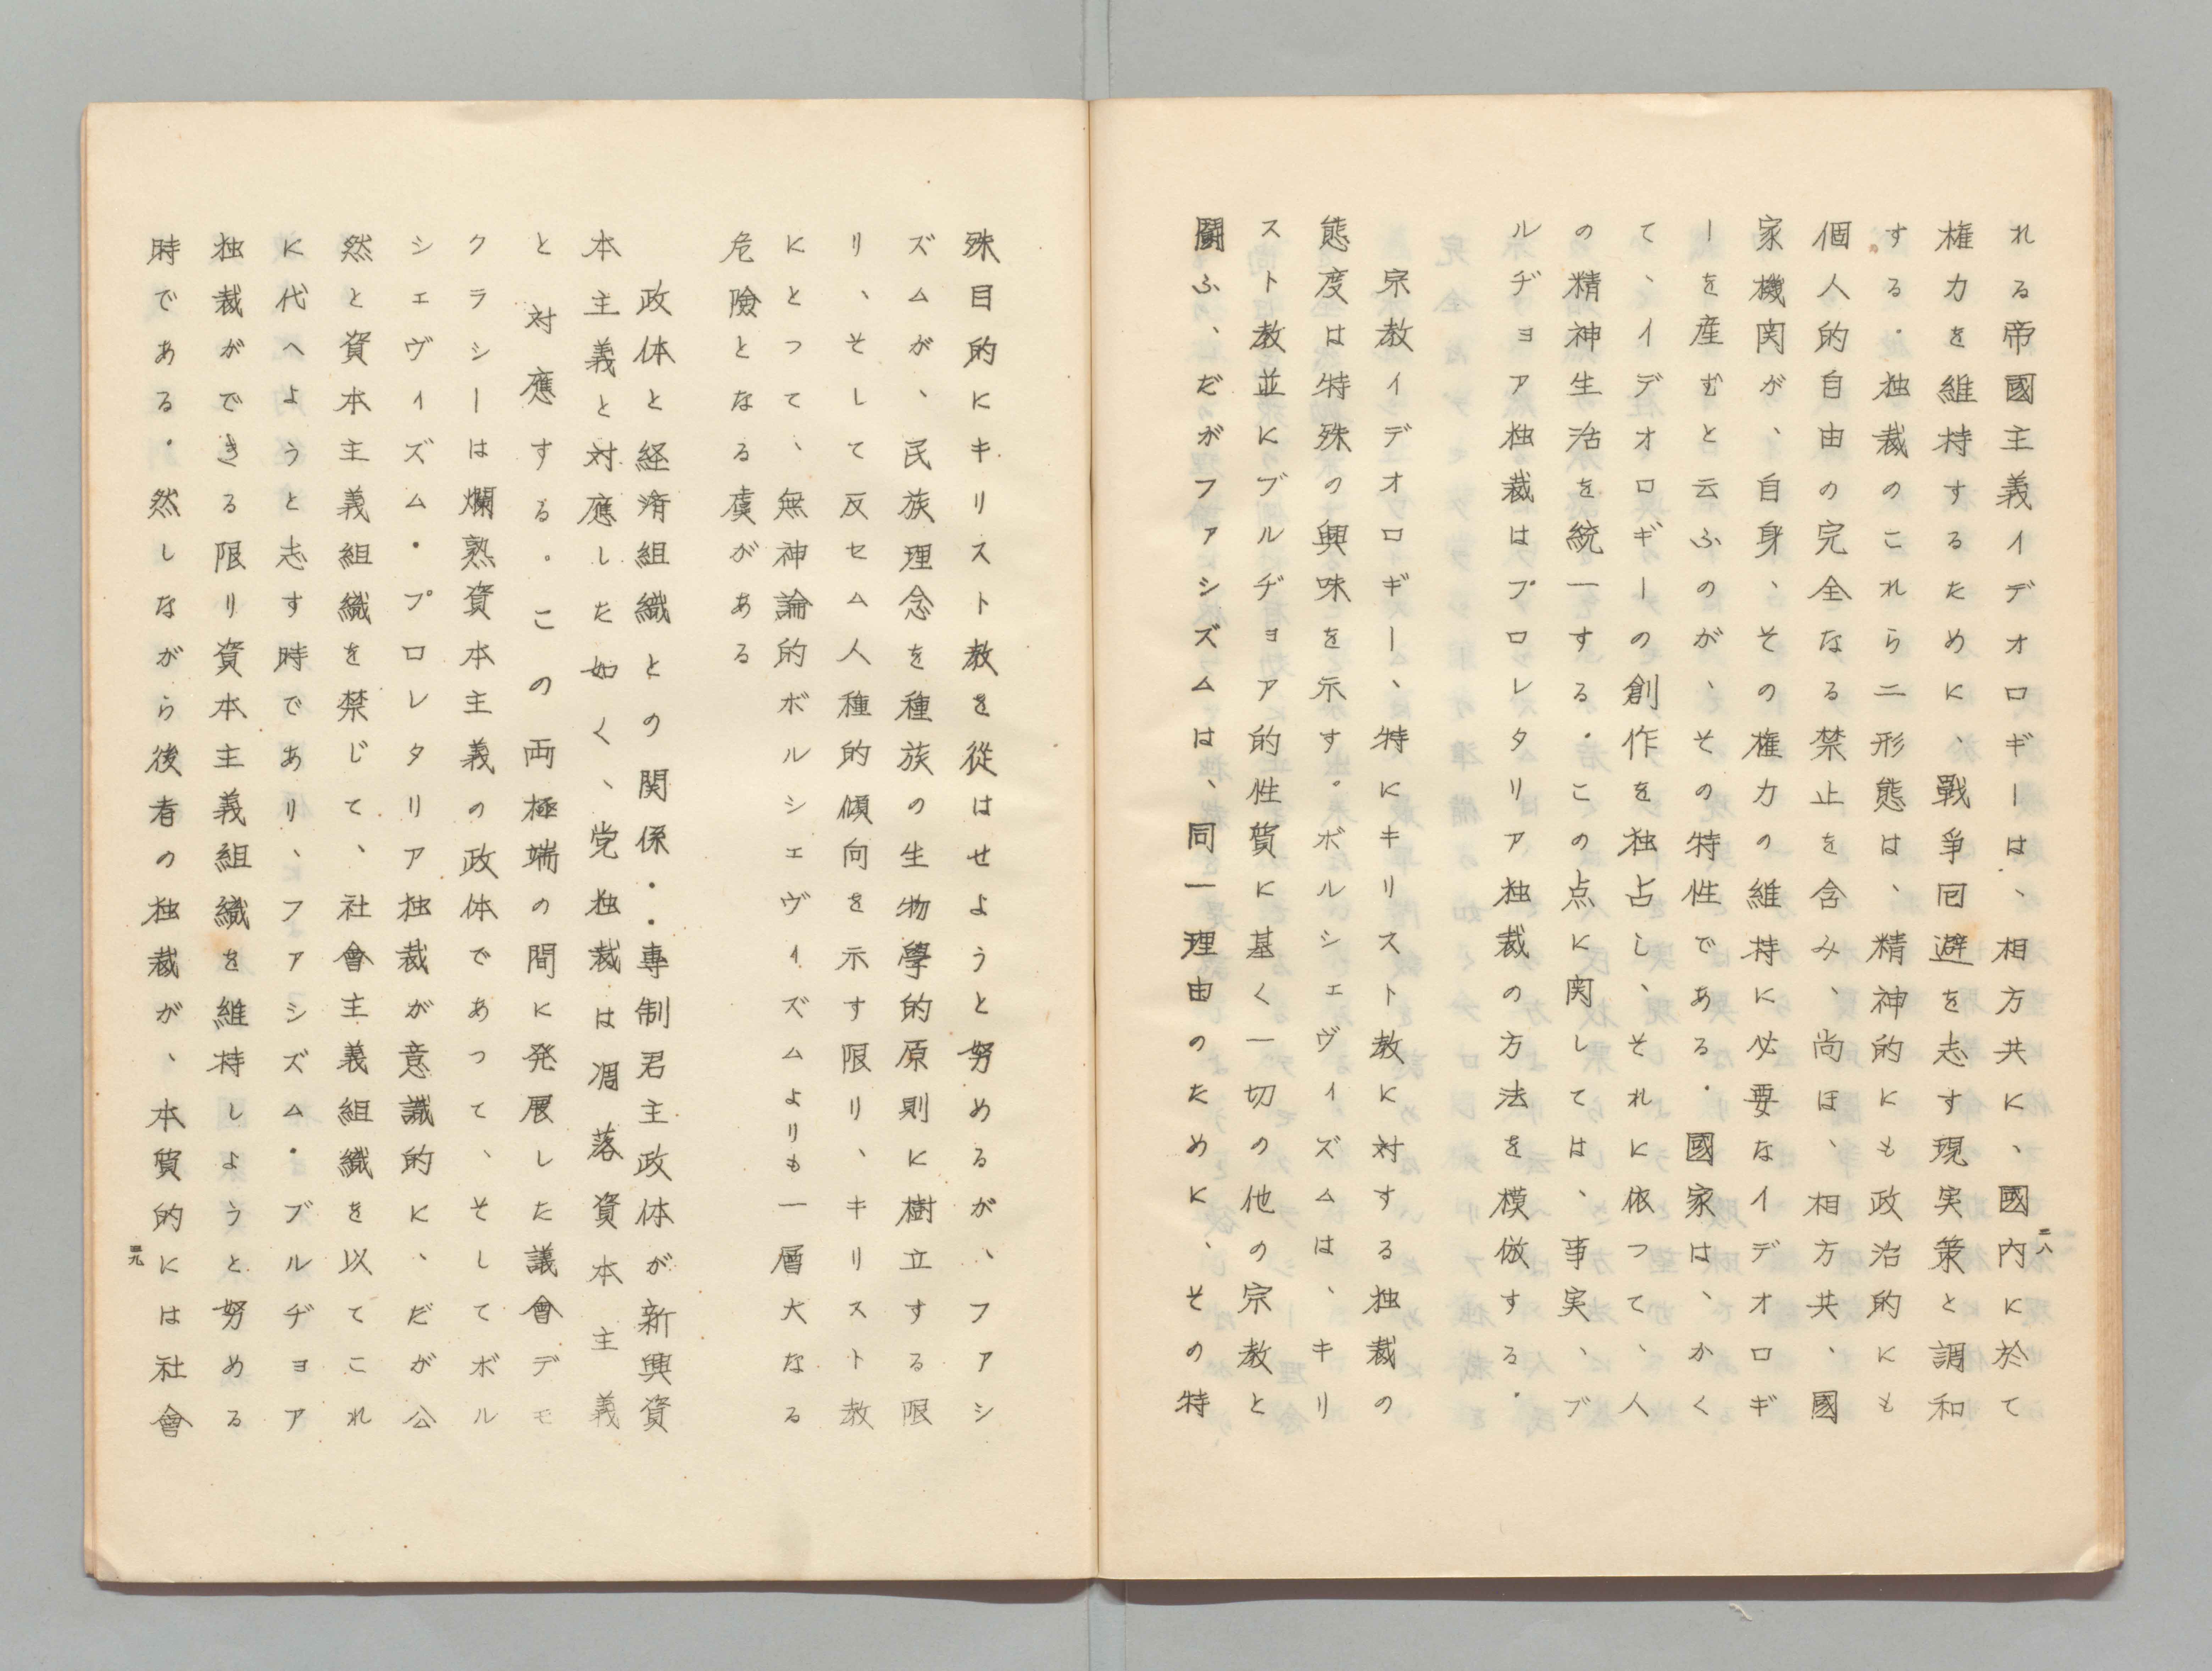 れる帝國主義イデオロギーは、相方共に、國内に於て
権力を維持するために、戰争囘避を志す現実策と調和
する．独裁のこれら二形態は、精神的にも政治的にも
個人的自由の完全なる禁止を含み、尚ほ、相方共、國
家機関が、自身、その権力の維持に必要なイデオロギ
ーを産むと云ふのが、その特性である．國家は、かく
て、イデオロギーの創作を独占し、それに依つて、人
の精神生活を統一する．この点に関しては、事実、ブ
ルヂョア独裁はプロレタリア独裁の方法を模倣する．
宗教イデオロギー、特にキリスト教に対する独裁の
態度は特殊の興味を示す。ボルシェヴィズムは、キリ
スト教並にブルヂョア的性質に基く一切の他の宗教と
鬪ふ、だがファシズムは、同一理由のために、その特
二八
殊目的にキリスト教を從はせようと努めるが、ファシ
ズムが、民族理念を種族の生物學的原則に樹立する限
リ、そして反セム人種的傾向を示す限リ、キリスト教
にとつて、無神論的ボルシェヴィズムよりも一層大なる
危險となる虞がある
政体と経済組織との関係．．專制君主政体が新興資
本主義と対應した如く、党独裁は凋落資本主義
と対應する．この両極端の間に発展した議會デモ
クラシーは爛熟資本主義の政体であつて、そしてボル
シェヴィズム・プロレタリア独裁が意識的に、だが公
然と資本主義組織を禁じて、社會主義組織を以てこれ
に代へようと志す時であり、ファシズム・ブルヂョア
独裁ができる限リ資本主義組織を維持しようと努める
時である．然しながら後者の独裁が、本質的には社會
二九